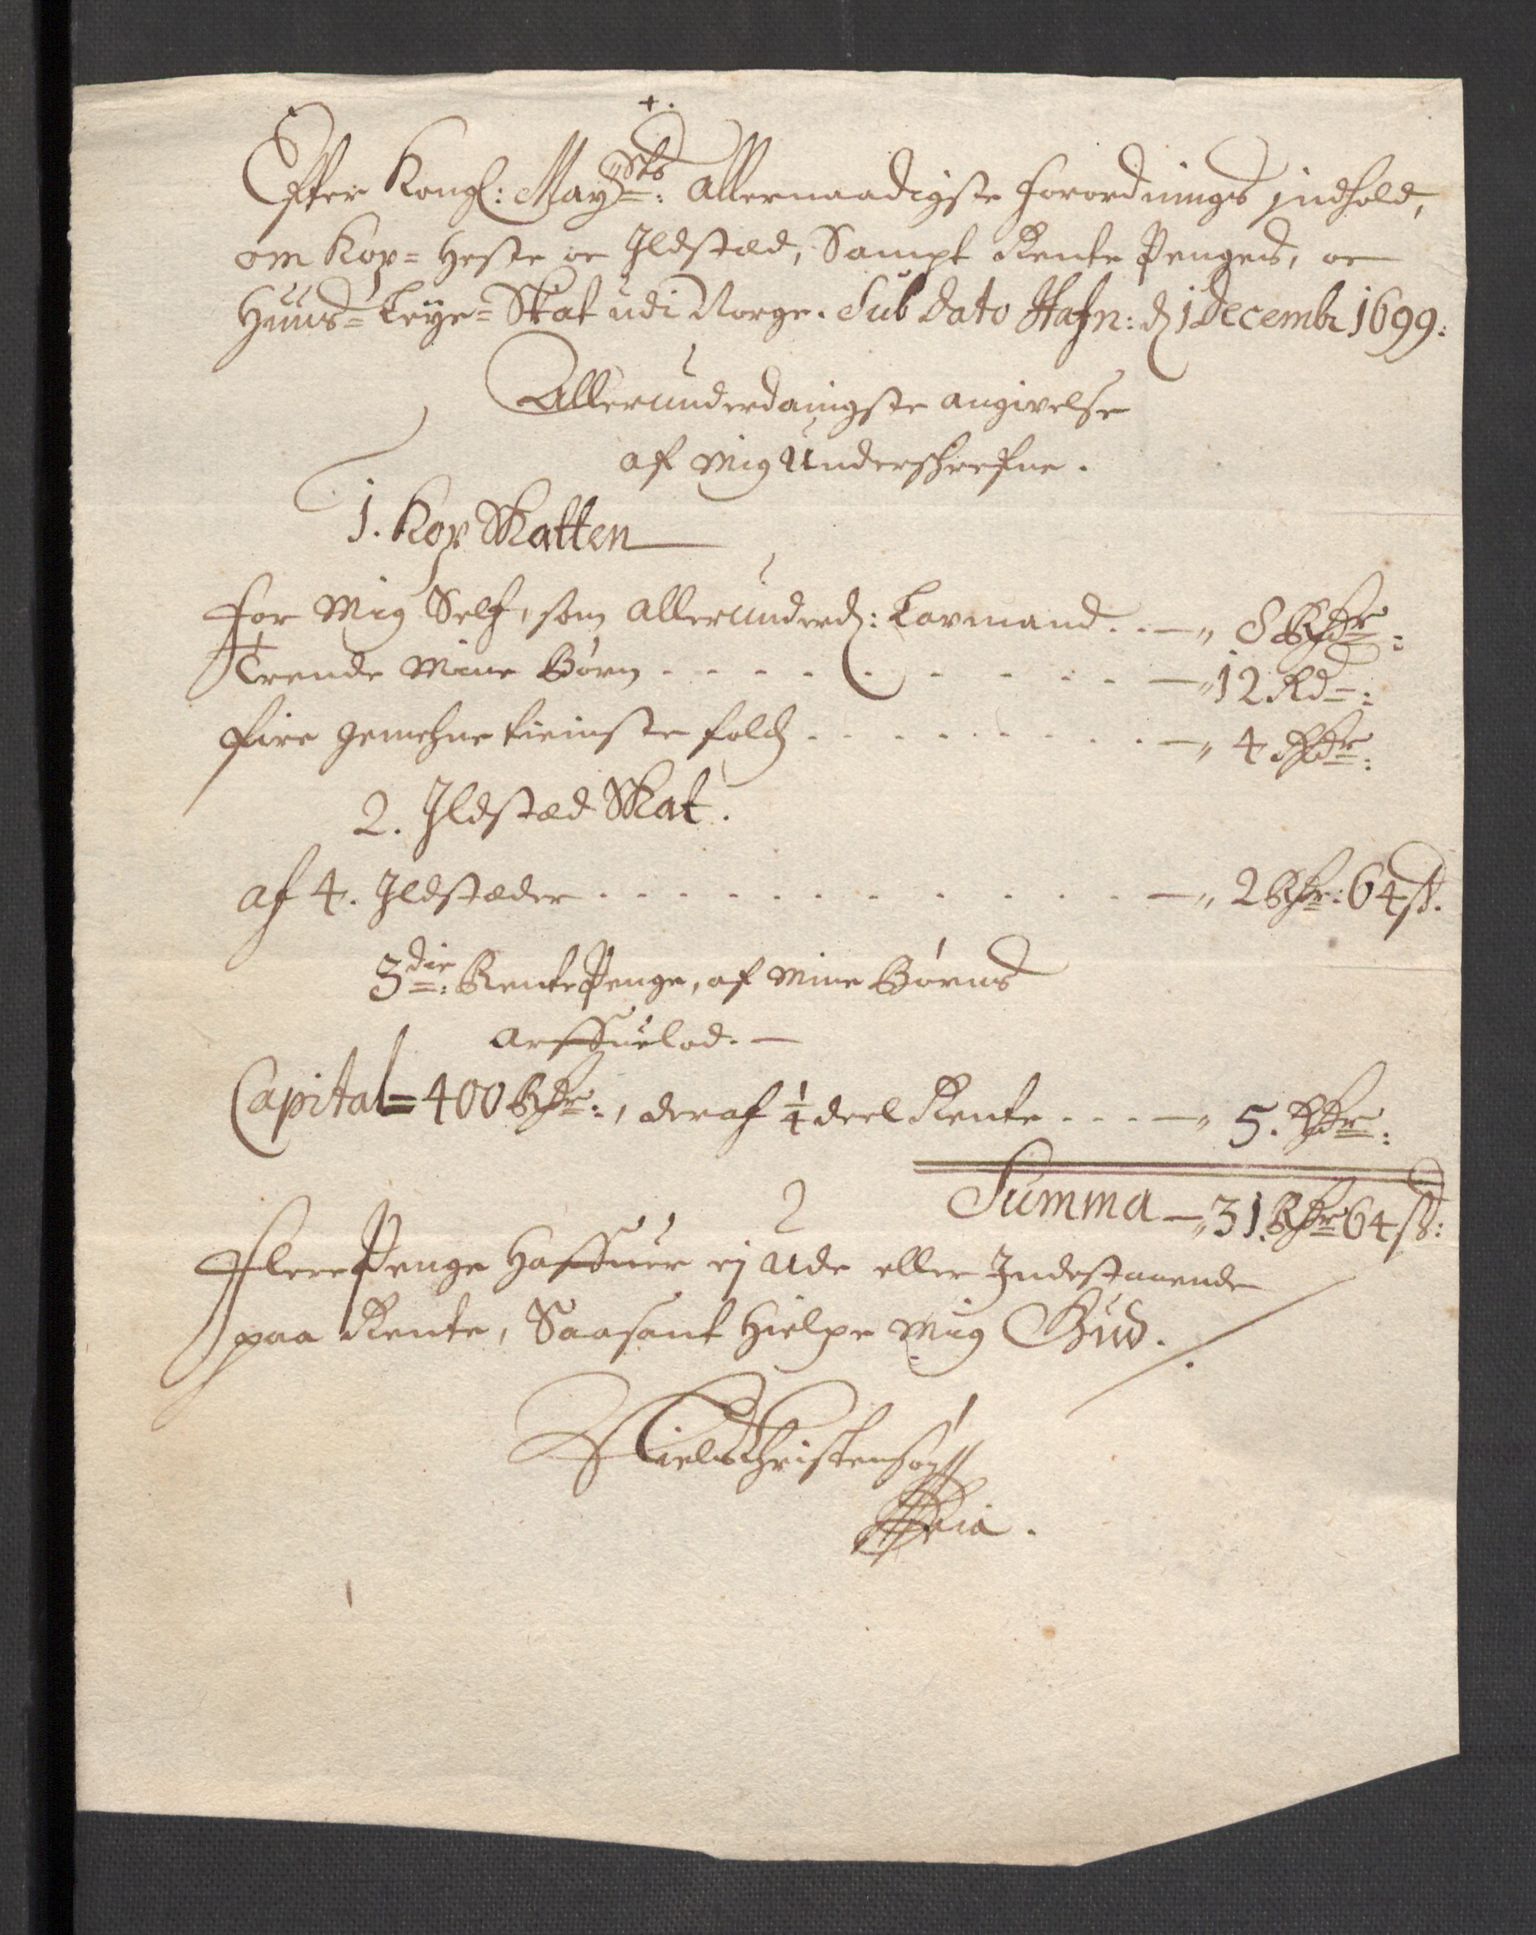 +.
Efter Kongl: Maysts: Allernaadigste forordnings jndhold,
om Kop= Heste oc Ildstæd, Sampt Rente Penges, oc
Huus= Leye= Skat udi Norge. Sub dato Hafn: d 1 Decembr 1699:
Allerunderdanigste angivelse
af mig Underschrefne.
1. Kop Skatten
For mig Self, som allerunderd: Lavmand . . — 8 Rdr:
Trende mine Børn . . . . . . . . — 12 Rd:
fire gemehne tieniste folch . . . . . . . . — 4 Rdr:
2. Ildstæd Skat.
af 4. Ildstæder . . . . . . . . — 2 Rdr: 64 ß.
3die: Rente Penge, af mine Børns
arffuelod. —
Capital= 400 Rdr:, deraf 1/4 deel Rente . . . — 5. Rdr:
Summa — 31 Rdr 64 ß:
Flere Penge Haffuer ej Ude eller Indestaaende
paa Rente, Saasant Hielpe mig Gud.
Niels Christensøn